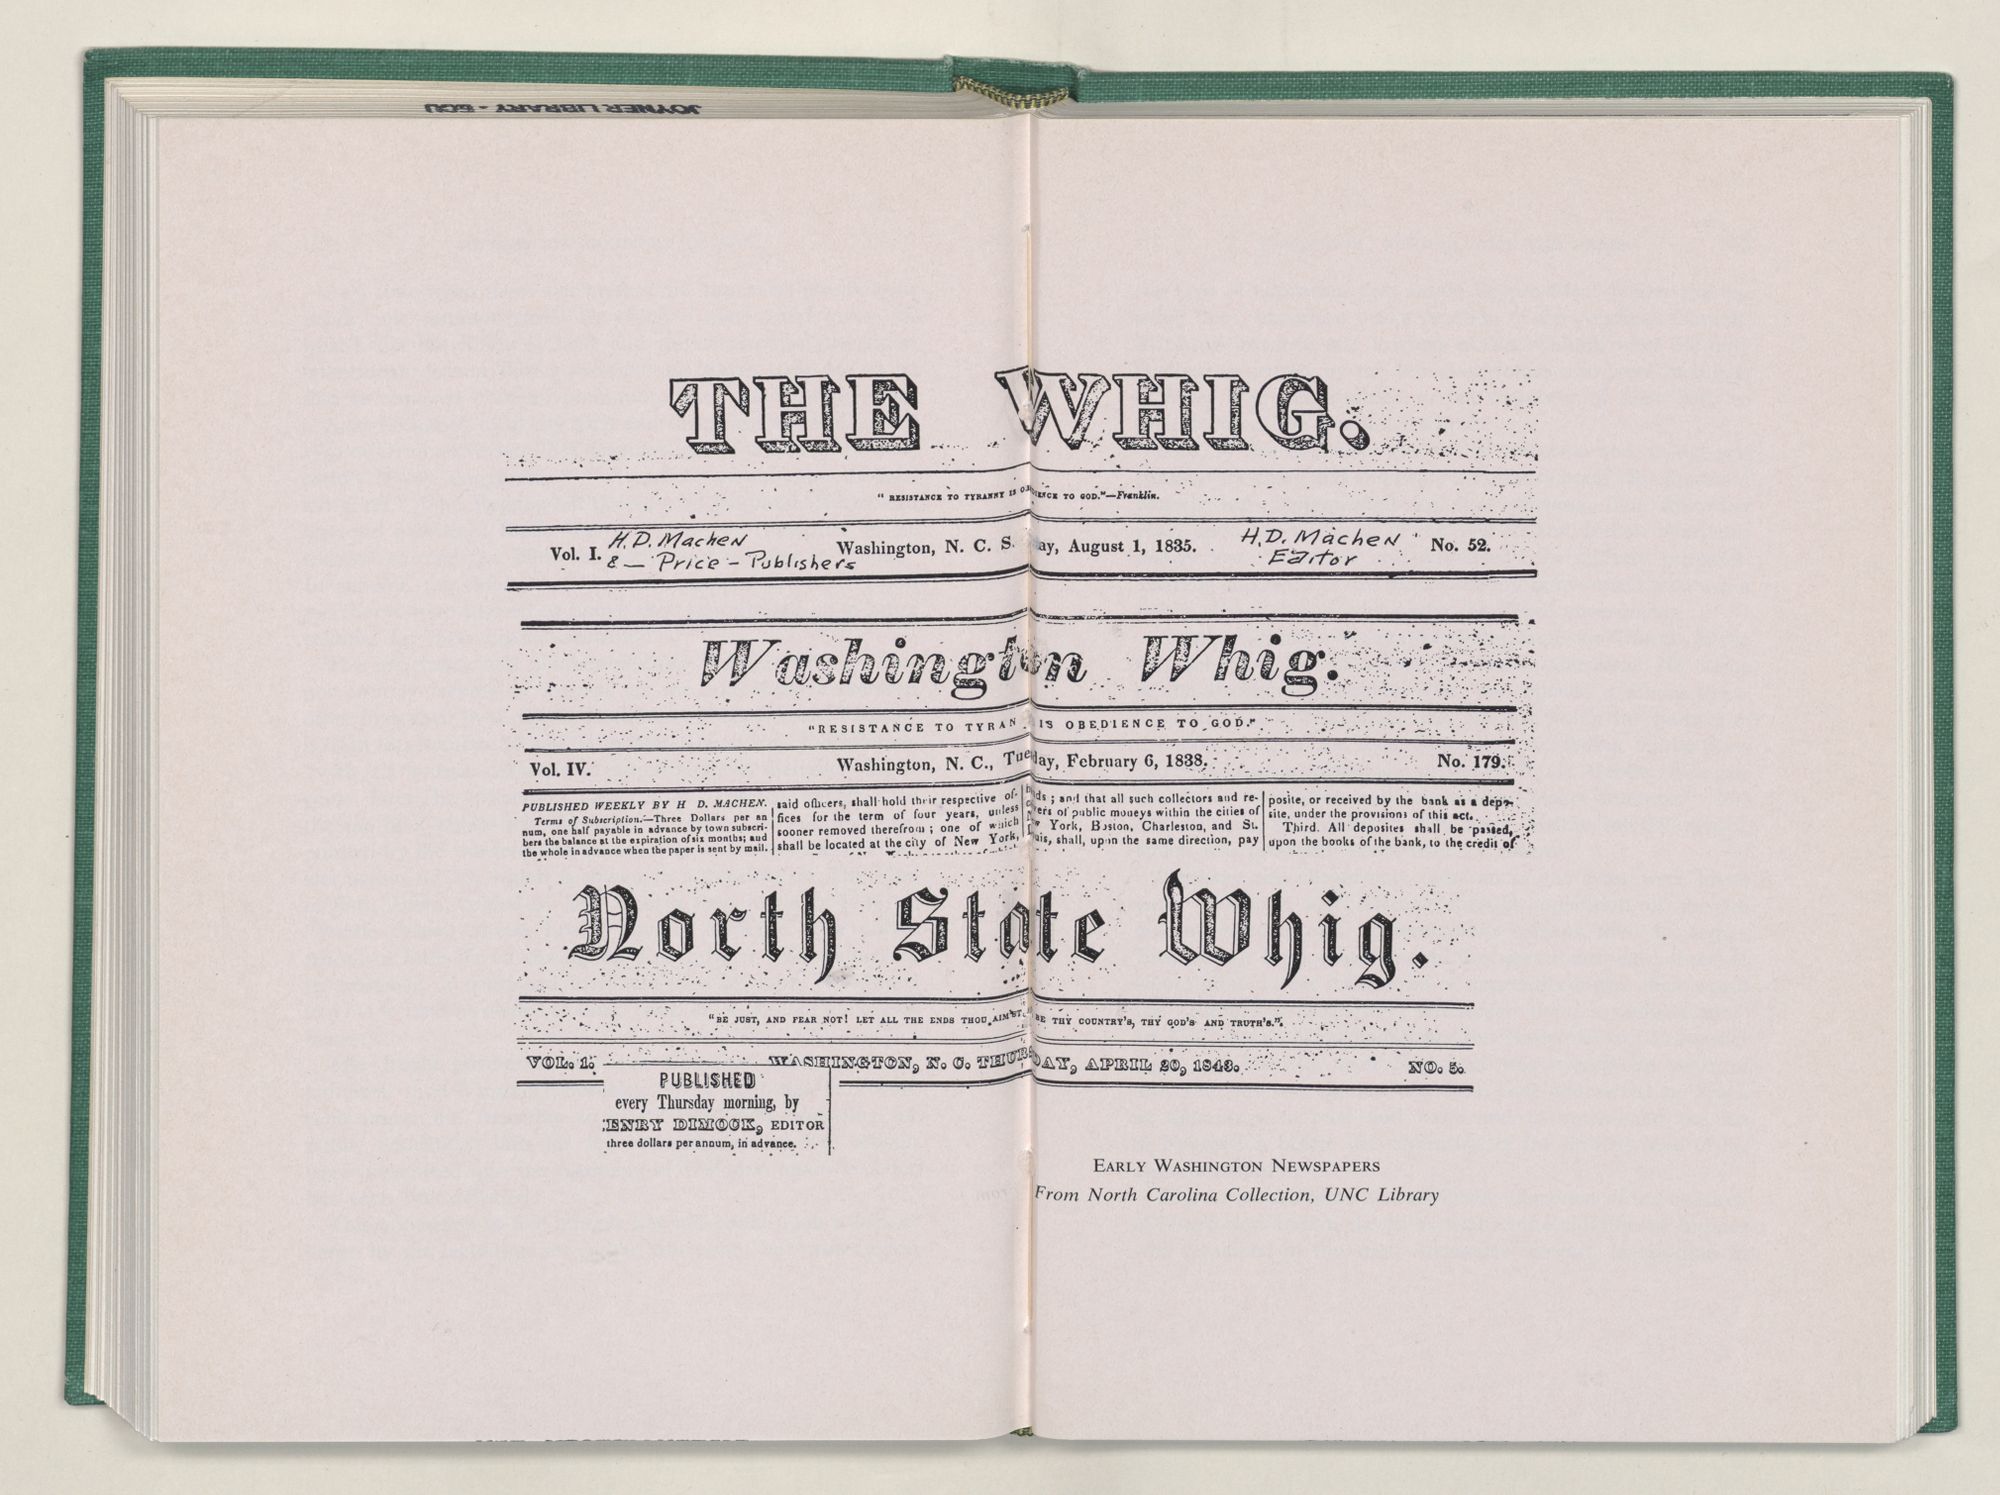 JOYNER LIBRARY - ECU
THE WHIG.
" RESISTANCE TO TYRANNY IS OBEDIENCE TO GOD."—Franklin.
Vol. I. H.D. Machen Washington, N. C. S ay, August 1, 1835. H.D. Machen No. 52.
& — Price - Publishers Editor
Washington Whig.
"RESISTANCE TO TYRAN IS OBEDIENCE TO GOD."
Vol. IV. Washington, N. C., Tuesday, February 6, 1838. No. 179.
PUBLISHED WEEKLY BY H D. MACHEN.
Terms of Subscription.—Three Dollars per an
num, one half payable in advance by town subscri-
bers the balance at the expiration of six months; and
the whole in advance when the paper is sent by mail.
said officers, shall hold their respective of-
fices for the term of four years, unless
sooner removed therefrom ; one of which
shall be located at the city of New York,
ds ; and that all such collectors and re-
vers of public moneys within the cities of
York, Boston, Charleston, and St.
uis, shall, upon the same direction, pay
posite, or received by the bank as a depo-
site, under the provisions of this act.
Third. All deposites shall be passed,
upon the books of the bank, to the credit of
North State Whig.
"BE JUST, AND FEAR NOT! LET ALL THE ENDS THOU AIM'ST BE THY COUNTRY'S, THY GOD'S AND TRUTH'S."
VOL. 1. WASHINGTON, N. C. THURSDAY, APRIL 20, 1843. NO. 5.
PUBLISHED
every Thursday morning, by
ENRY DIMOCK, EDITOR
three dollars per annum, in advance.
EARLY WASHINGTON NEWSPAPERS
From North Carolina Collection, UNC Library